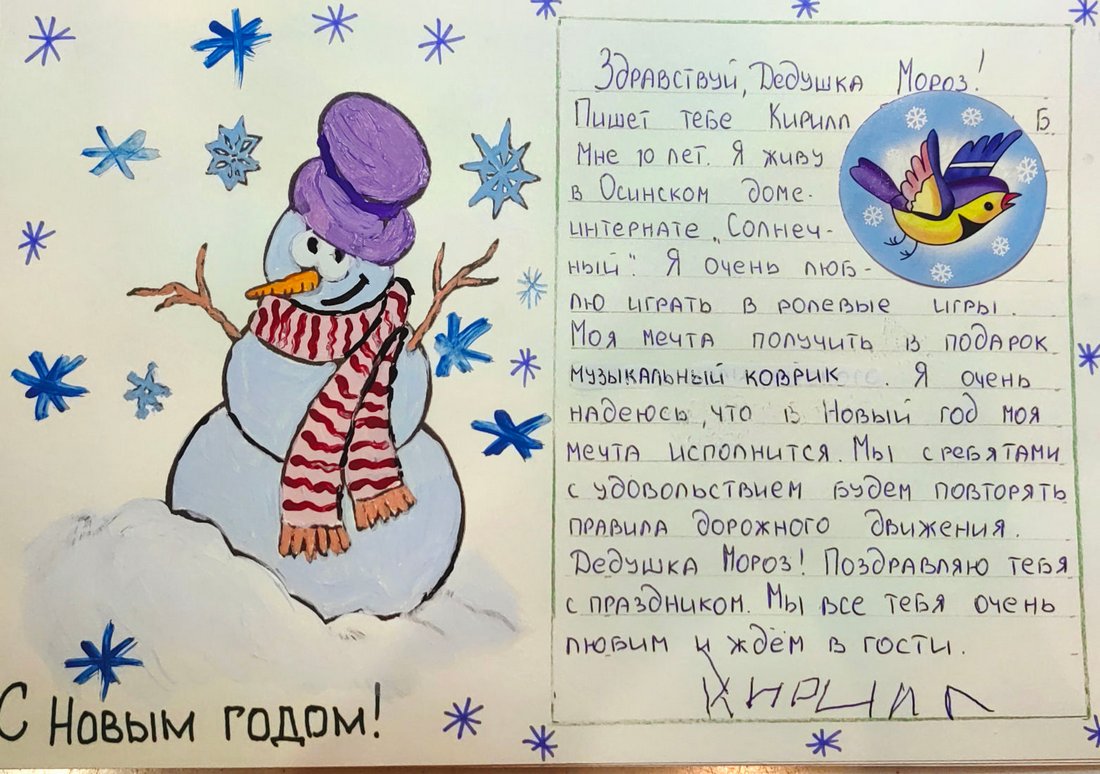 Здравствуй, Дедушка Мороз!
Пишет тебе Кирилл Б
Мне 10 лет. Я живу
в Осинском доме-
интернате „Солнеч-
ный". Я очень люб-
лю играть в ролевые игры.
Моя мечта получить в подарок
музыкальный коврик . Я очень
надеюсь, что в Новый год моя
мечта исполнится. Мы с ребятами
с удовольствием будем повторять
правила дорожного движения.
Дедушка Мороз! Поздравляю тебя
с праздником. Мы все тебя очень
любим и ждём в гости.
Кирилл
С Новым годом!